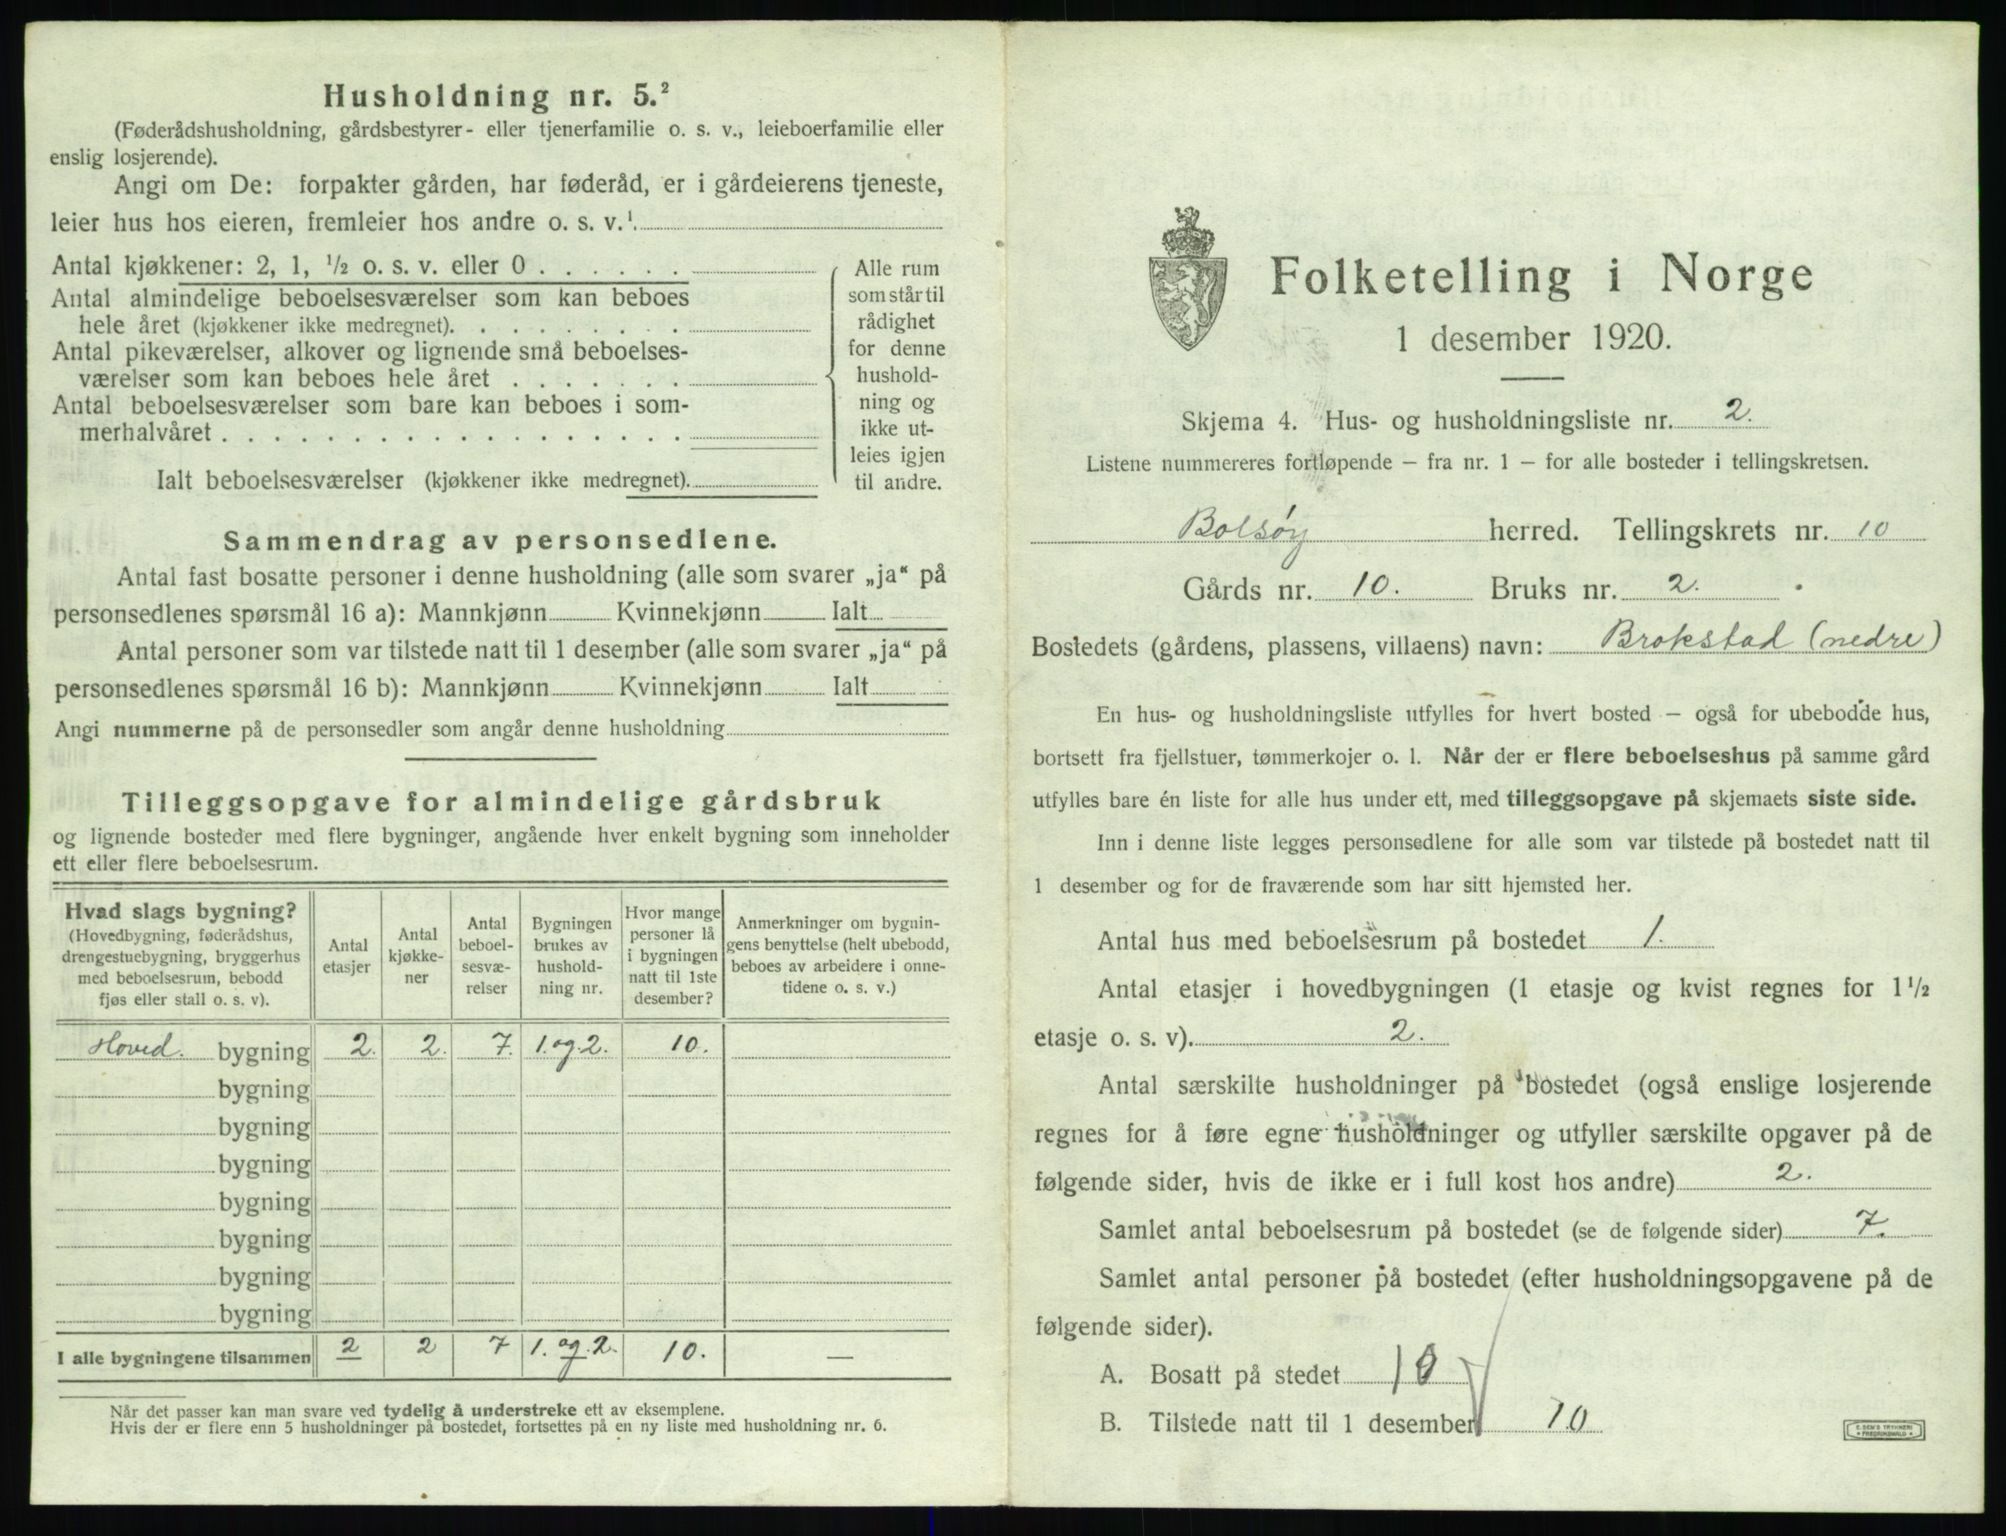 Husholdning nr. 5.²
(Føderådshusholdning, gårdsbestyrer- eller tjenerfamilie o. s. v., leieboerfamilie eller
enslig losjerende).
Angi om De: forpakter gården, har føderåd, er i gårdeierens tjeneste,
leier hus hos eieren, fremleier hos andre o. s. v.¹
Antal kjøkkener: 2, 1, ½ o. s. v. eller 0
Antal almindelige beboelsesværelser som kan beboes
hele året (kjøkkener ikke medregnet)
Antal pikeværelser, alkover og lignende små beboelses-
værelser som kan beboes hele året
Antal beboelsesværelser som bare kan beboes i som-
merhalvåret
Ialt beboelsesværelser (kjøkkener ikke medregnet)
Alle rum
som står til
rådighet
for denne
hushold-
ning og
ikke ut-
leies igjen
til andre.
Sammendrag av personsedlene.
Antal fast bosatte personer i denne husholdning (alle som svarer „ja“ på
personsedlenes spørsmål 16 a): Mannkjønn Kvinnekjønn Ialt
Antal personer som var tilstede natt til 1 desember (alle som svarer „ja“ på
personsedlenes spørsmål 16 b): Mannkjønn Kvinnekjønn Ialt
Angi nummerne på de personsedler som angår denne husholdning
Tilleggsopgave for almindelige gårdsbruk
og lignende bosteder med flere bygninger, angående hver enkelt bygning som inneholder
ett eller flere beboelsesrum.
Hvad slags bygning?
(Hovedbygning, føderådshus,
drengestuebygning, bryggerhus
med beboelsesrum, bebodd
fjøs eller stall o. s. v).
Antal
etasjer
Antal
kjøkke-
ner
Antal
beboel-
sesvæ-
relser
Bygningen
brukes av
hushold-
ning nr.
Hvor mange
personer lå
i bygningen
natt til 1ste
desember?
Anmerkninger om bygnin-
gens benyttelse (helt ubebodd,
beboes av arbeidere i onne-
tidene o. s. v.)
Hoved. bygning 2. 2. 7. 1. og 2. 10.
bygning
bygning
bygning
bygning
bygning
bygning
bygning
I alle bygningene tilsammen 2 2 7 1. og 2. 10. —
Når det passer kan man svare ved tydelig å understreke ett av eksemplene.
Hvis der er flere enn 5 husholdninger på bostedet, fortsettes på en ny liste med husholdning nr. 6.
Folketelling i Norge
1 desember 1920.
Skjema 4. Hus- og husholdningsliste nr. 2.
Listene nummereres fortløpende – fra nr. 1 – for alle bosteder i tellingskretsen.
Bolsøy herred. Tellingskrets nr. 10
Gårds nr. 10. Bruks nr. 2.
Bostedets (gårdens, plassens, villaens) navn: Brokstad (nedre)
En hus- og husholdningsliste utfylles for hvert bosted – også for ubebodde hus,
bortsett fra fjellstuer, tømmerkojer o. l. Når der er flere beboelseshus på samme gård
utfylles bare én liste for alle hus under ett, med tilleggsopgave på skjemaets siste side.
Inn i denne liste legges personsedlene for alle som var tilstede på bostedet natt til
1 desember og for de fraværende som har sitt hjemsted her.
Antal hus med beboelsesrum på bostedet 1.
Antal etasjer i hovedbygningen (1 etasje og kvist regnes for 1½
etasje o. s. v). 2.
Antal særskilte husholdninger på bostedet (også enslige losjerende
regnes for å føre egne husholdninger og utfyller særskilte opgaver på de
følgende sider, hvis de ikke er i full kost hos andre) 2.
Samlet antal beboelsesrum på bostedet (se de følgende sider) 7.
Samlet antal personer på bostedet (efter husholdningsopgavene på de
følgende sider).
A. Bosatt på stedet 10
B. Tilstede natt til 1 desember 10